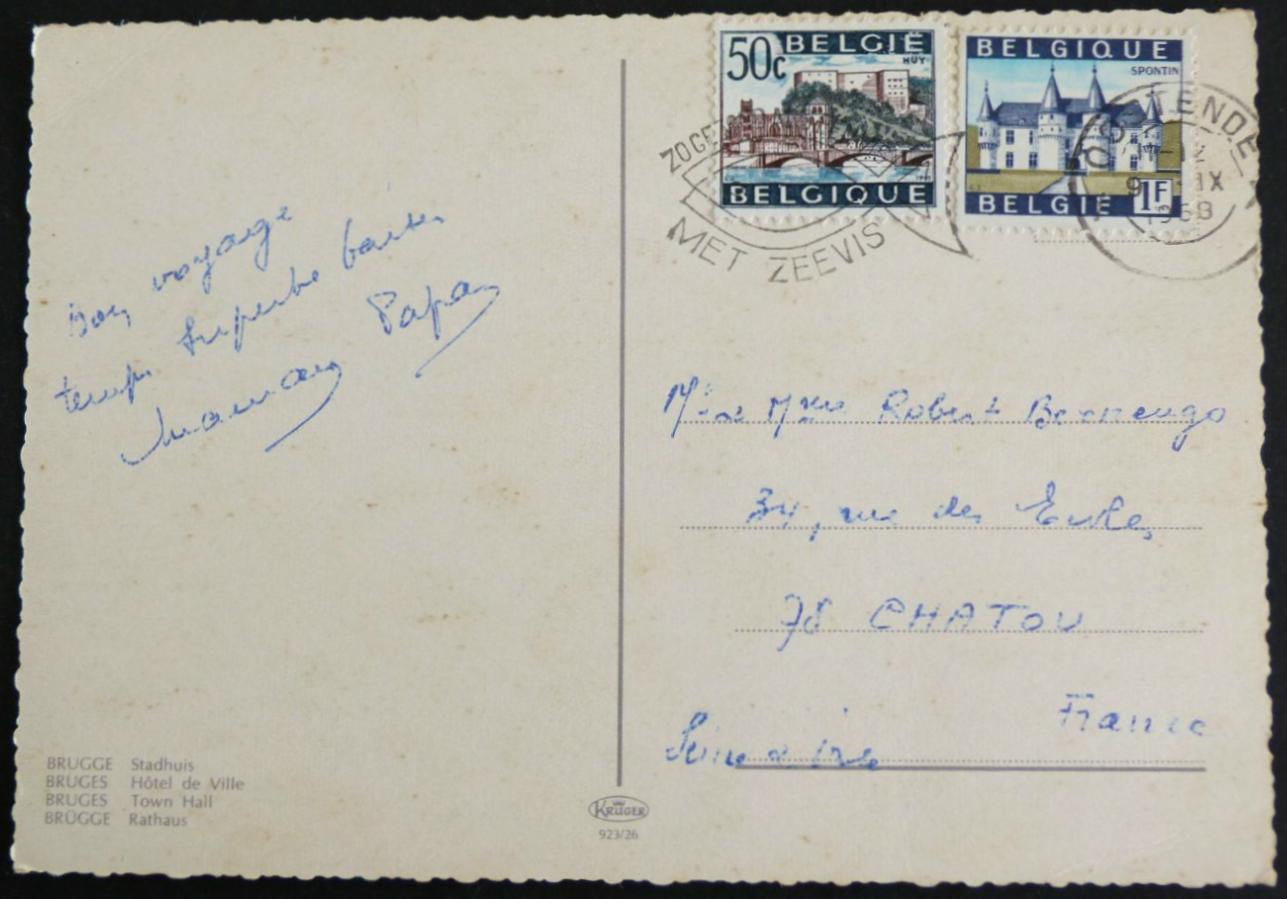 50c BELGIË
HUY
BELGIQUE
BELGIQUE
SPONTIN
BELGIE 1F
MET ZEEVIS
OOSTENDE
11-12
9 IX
1968
Bon voyage
temps superbe
Maman Papa
Mr et Mme Robert
34, rue des Ecoles
78 CHATOU
France
Seine et Oise
BRUGGE Stadhuis
BRUGES Hôtel de Ville
BRUGES Town Hall
BRÜGGE Rathaus
KRÜGER
923/26